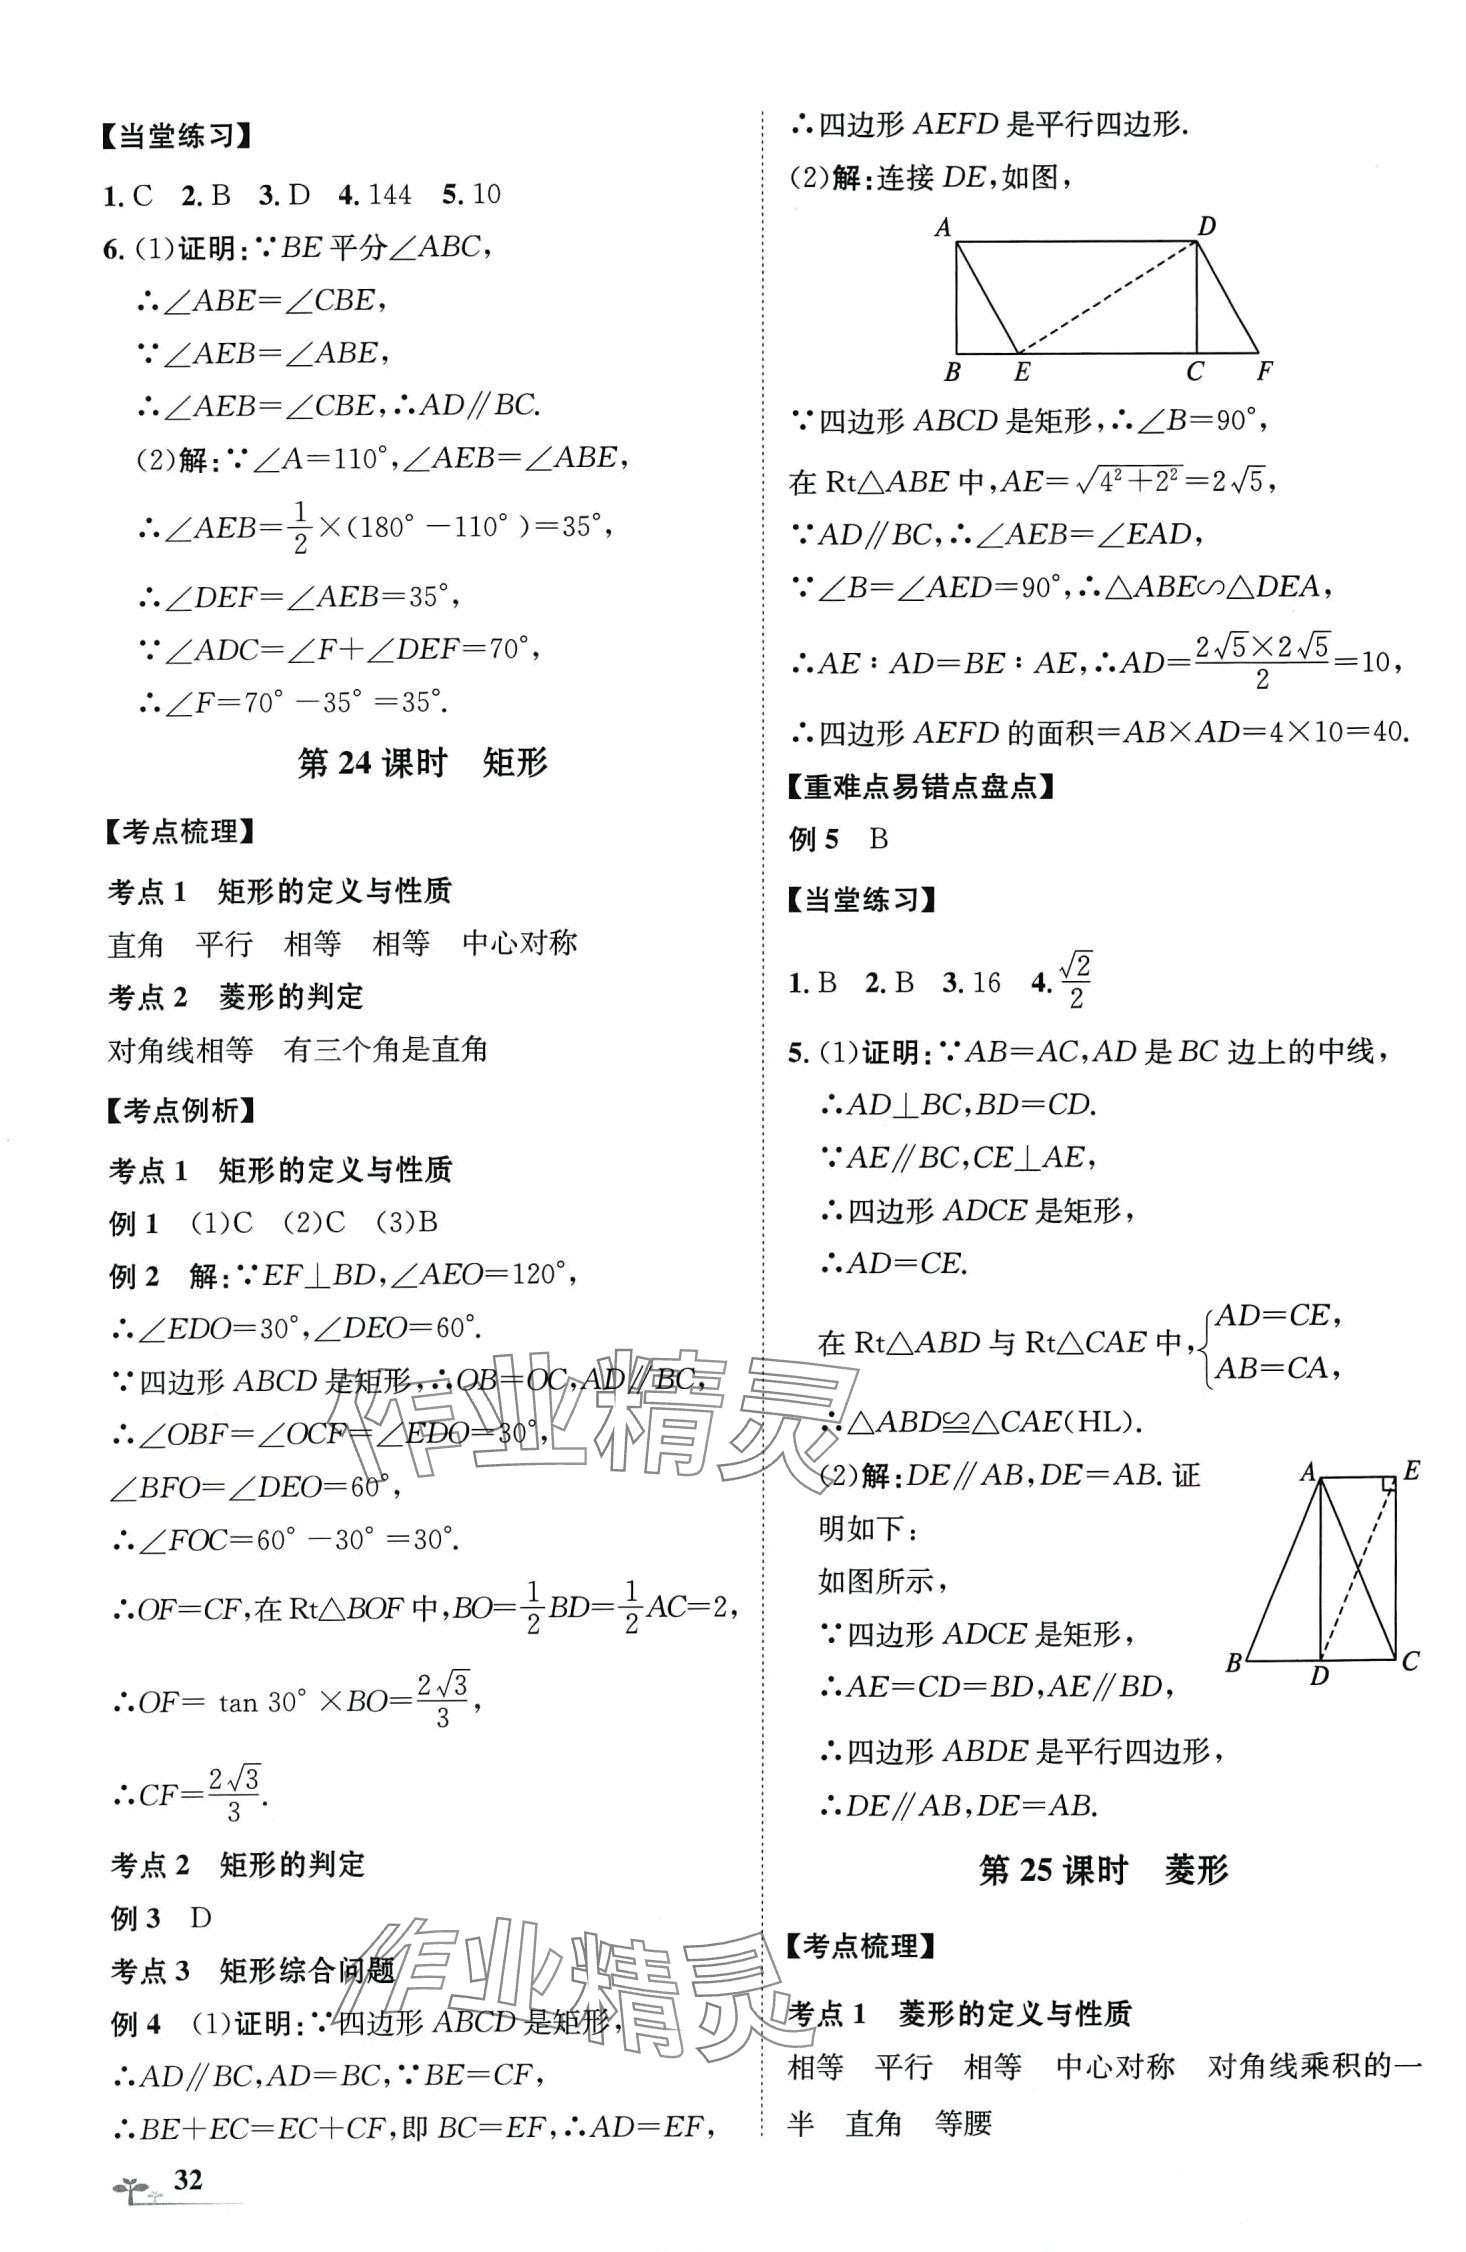 【当堂练习】
1. C  2. B  3. D  4. 144  5. 10
6. (1)证明:∵BE平分∠ABC,
∴∠ABE=∠CBE,
∵∠AEB=∠ABE,
∴∠AEB=∠CBE,∴AD∥BC.
(2)解:∵∠A=110°,∠AEB=∠ABE,
∴∠AEB=1/2×(180°-110°)=35°,
∴∠DEF=∠AEB=35°,
∵∠ADC=∠F+∠DEF=70°,
∴∠F=70°-35°=35°.
第24课时 矩形
【考点梳理】
考点1 矩形的定义与性质
直角 平行 相等 相等 中心对称
考点2 菱形的判定
对角线相等 有三个角是直角
【考点例析】
考点1 矩形的定义与性质
例1 (1)C (2)C (3)B
例2 解:∵EF⊥BD,∠AEO=120°,
∴∠EDO=30°,∠DEO=60°.
∵四边形ABCD是矩形,∴OB=OC,AD∥BC,
∴∠OBF=∠OCF=∠EDO=30°,
∠BFO=∠DEO=60°,
∴∠FOC=60°-30°=30°.
∴OF=CF,在Rt△BOF中,BO=1/2BD=1/2AC=2,
∴OF=tan 30°×BO=2√3/3,
∴CF=2√3/3.
考点2 矩形的判定
例3 D
考点3 矩形综合问题
例4 (1)证明:∵四边形ABCD是矩形,
∴AD∥BC,AD=BC,∵BE=CF,
∴BE+EC=EC+CF,即BC=EF,∴AD=EF,
32
∴四边形AEFD是平行四边形.
(2)解:连接DE,如图,
A D
B E C F
∵四边形ABCD是矩形,∴∠B=90°,
在Rt△ABE中,AE=√(4²+2²)=2√5,
∵AD∥BC,∴∠AEB=∠EAD,
∵∠B=∠AED=90°,∴△ABE∽△DEA,
∴AE:AD=BE:AE,∴AD=(2√5×2√5)/2=10,
∴四边形AEFD的面积=AB×AD=4×10=40.
【重难点易错点盘点】
例5 B
【当堂练习】
1. B  2. B  3. 16  4. √2/2
5. (1)证明:∵AB=AC,AD是BC边上的中线,
∴AD⊥BC,BD=CD.
∵AE∥BC,CE⊥AE,
∴四边形ADCE是矩形,
∴AD=CE.
在Rt△ABD与Rt△CAE中,{AD=CE,
AB=CA,
∴△ABD≌△CAE(HL).
(2)解:DE∥AB,DE=AB.证
明如下:
如图所示,
A E
B D C
∵四边形ADCE是矩形,
∴AE=CD=BD,AE∥BD,
∴四边形ABDE是平行四边形,
∴DE∥AB,DE=AB.
第25课时 菱形
【考点梳理】
考点1 菱形的定义与性质
相等 平行 相等 中心对称 对角线乘积的一
半 直角 等腰
作业精灵
作业精灵